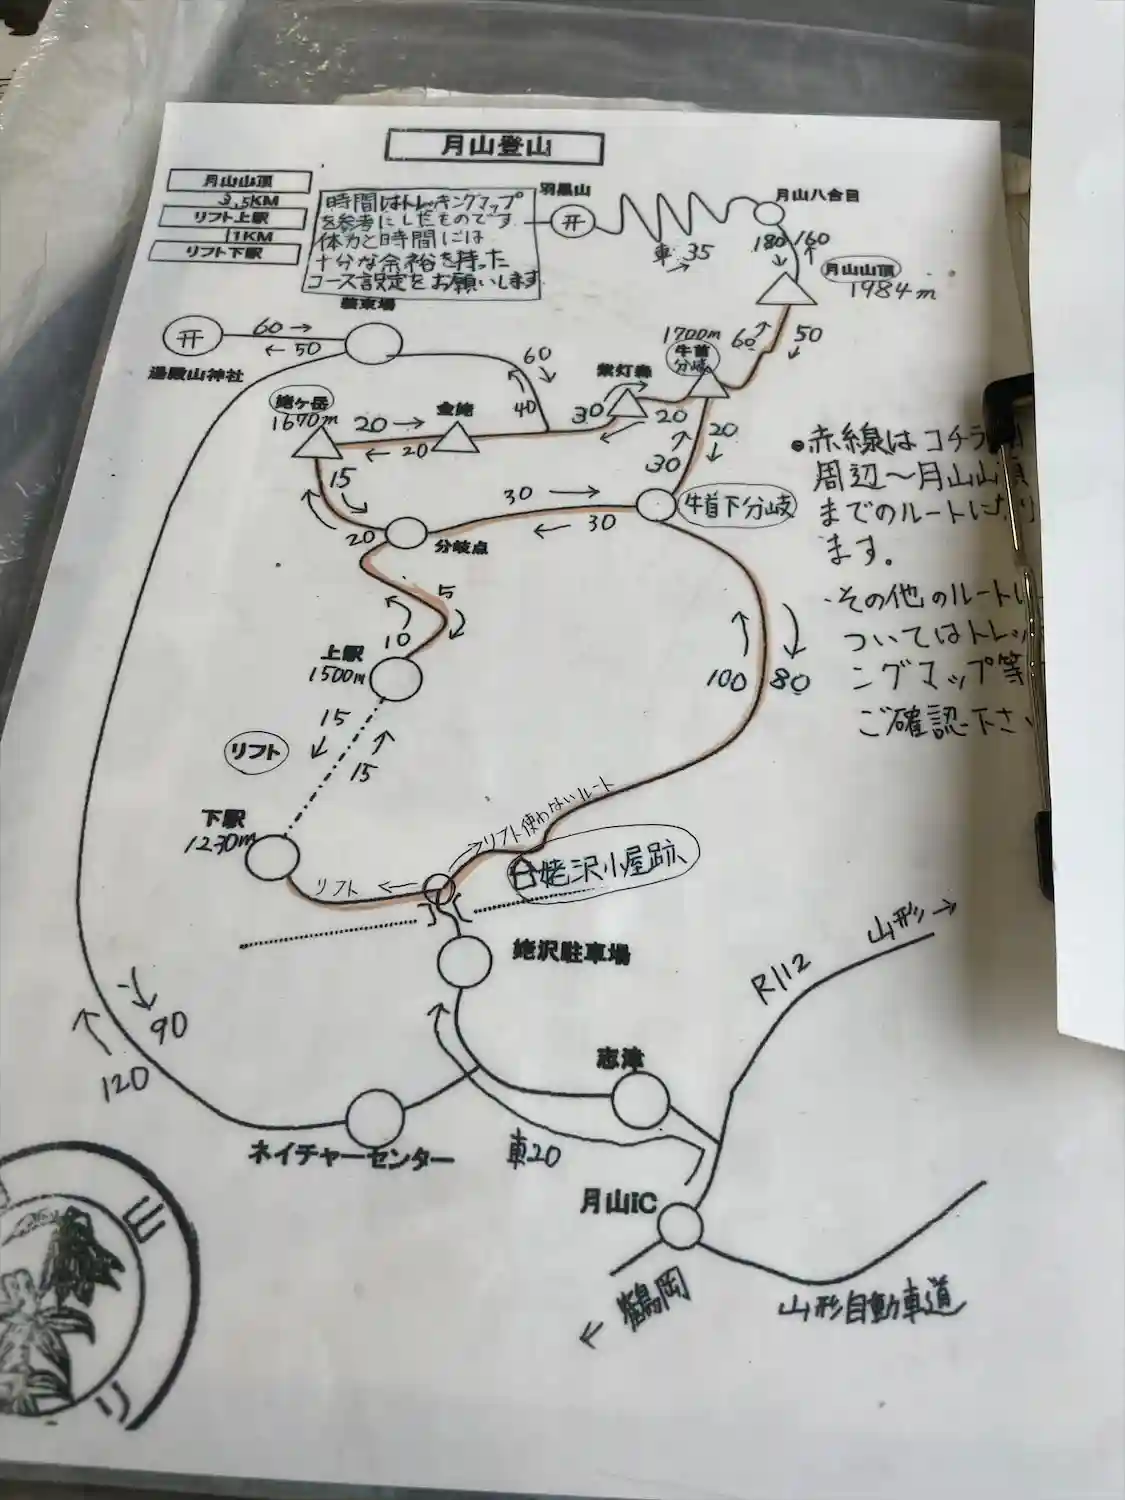 月山登山
月山山頂
3.5KM
リフト上駅
1KM
リフト下駅
時間はトレッキングマップ
を参考にしたものです。
体力と時間には
十分な余裕を持った
コース設定をお願いします
羽黒山
月山八合目
車 35
→
180 160
↓ ↑
月山山頂
1984m
装束場
60 →
← 50
湯殿山神社
60
40
1700m
牛首
分岐
60
50
紫灯森
姥ヶ岳
1670m
20 →
← 20
金姥
30
20
20
30
15
20
分岐点
30 →
← 30
牛首下分岐
●赤線はコチラ
周辺～月山山頂
までのルートになり
ます。
・その他のルートに
ついてはトレッ
ングマップ等
ご確認下さ
5
10
上駅
1500m
15
↓
↑
15
リフト
100 80
下駅
1230m
リフト ←
→リフト使わないルート
姥沢小屋跡
姥沢駐車場
山形→
R112
90
120
志津
ネイチャーセンター
車20
月山IC
← 鶴岡
山形自動車道
山
リ